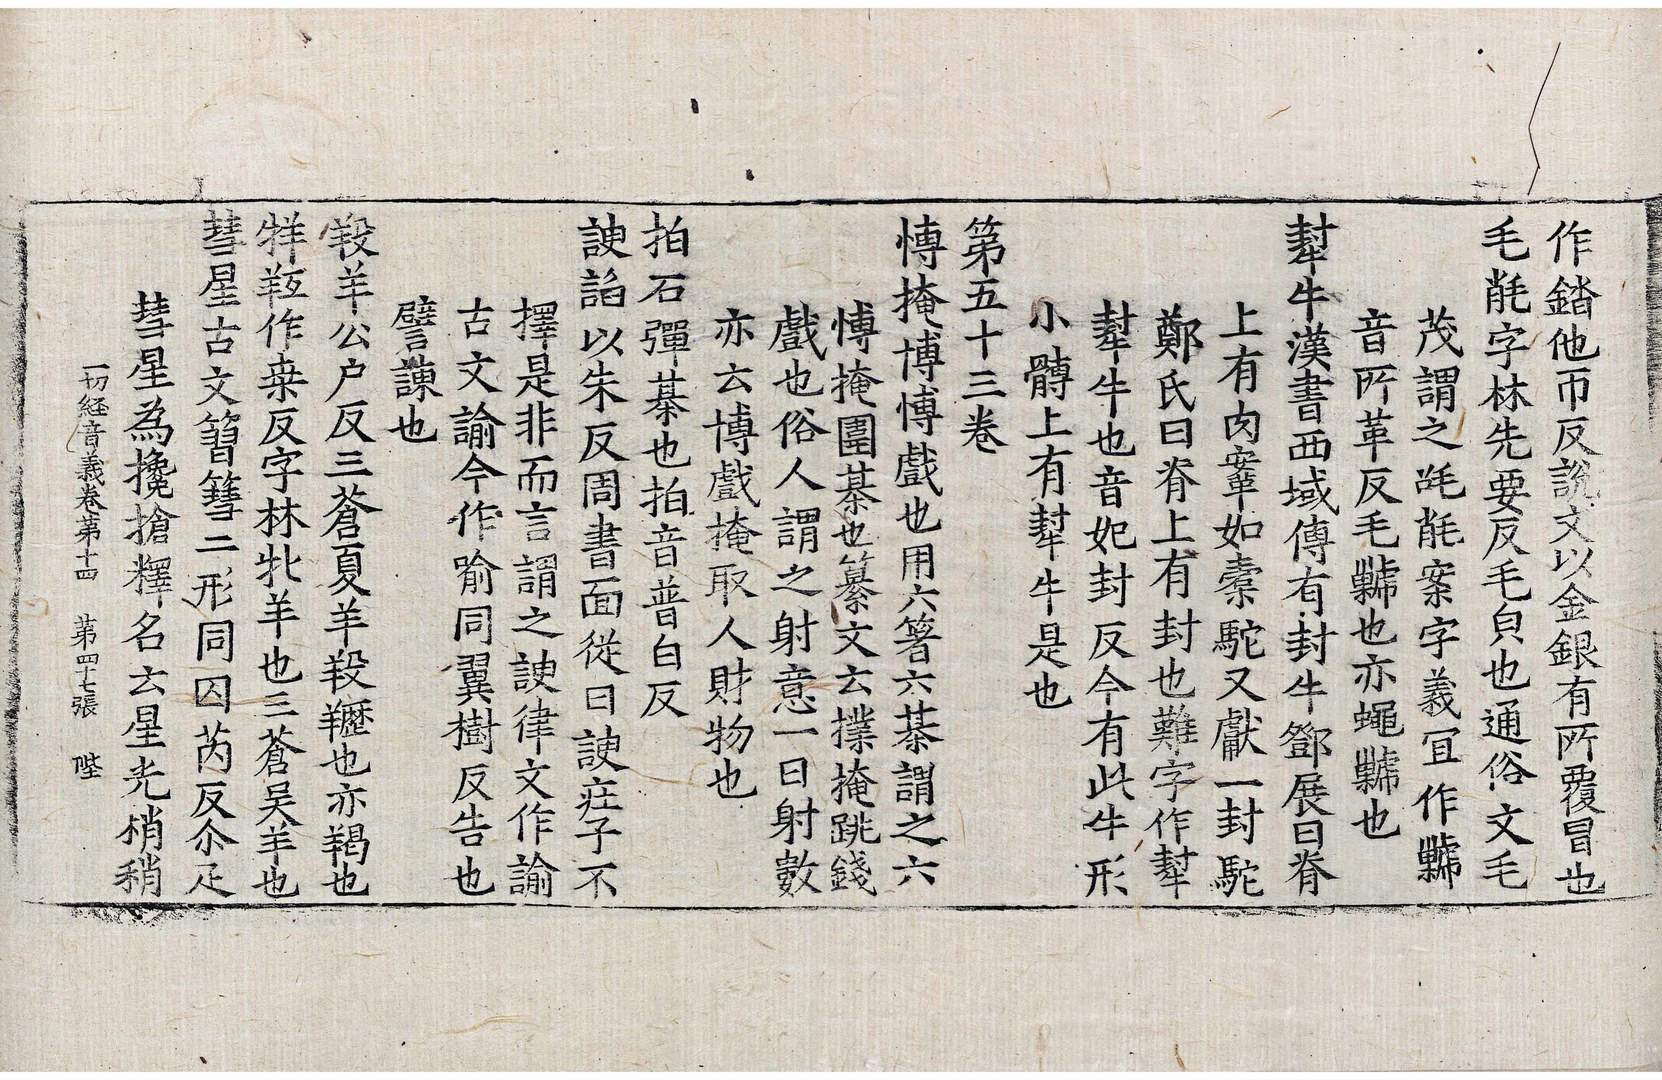 作錔他帀反說文以金銀有所覆冒也
毛毷字林先要反毛皃也通俗文毛
茂謂之毷案字義冝作氎
音所革反毛也亦蠅也
犎牛漢書西域傳有封牛鄧展曰脊
上有肉鞌如橐駝又獻一封駝
鄭氏曰脊上有封也難字作犎
犎牛也音妃封反今有此牛形
小髆上有犎牛是也
第五十三卷
愽掩博愽戲也用六箸六棊謂之六
愽掩圍棊也纂文云撲掩跳錢
戲也俗人謂之射意一曰射數
亦云博戲掩取人財物也
拍石彈棊也拍音普白反
諛諂以朱反周書面從曰諛莊子不
擇是非而言謂之諛律文作諭
古文諭今作喻同翼樹反告也
譬諫也
羖羊公户反三蒼夏羊羖䍽也亦羯也
牂羊𦍩作桒反字林牝羊也三蒼吴羊也
彗星古文篲䇓二形同囚芮反尒疋
彗星為攙搶釋名云星光梢稍
一切経音義卷第十四 第四十七張 陛